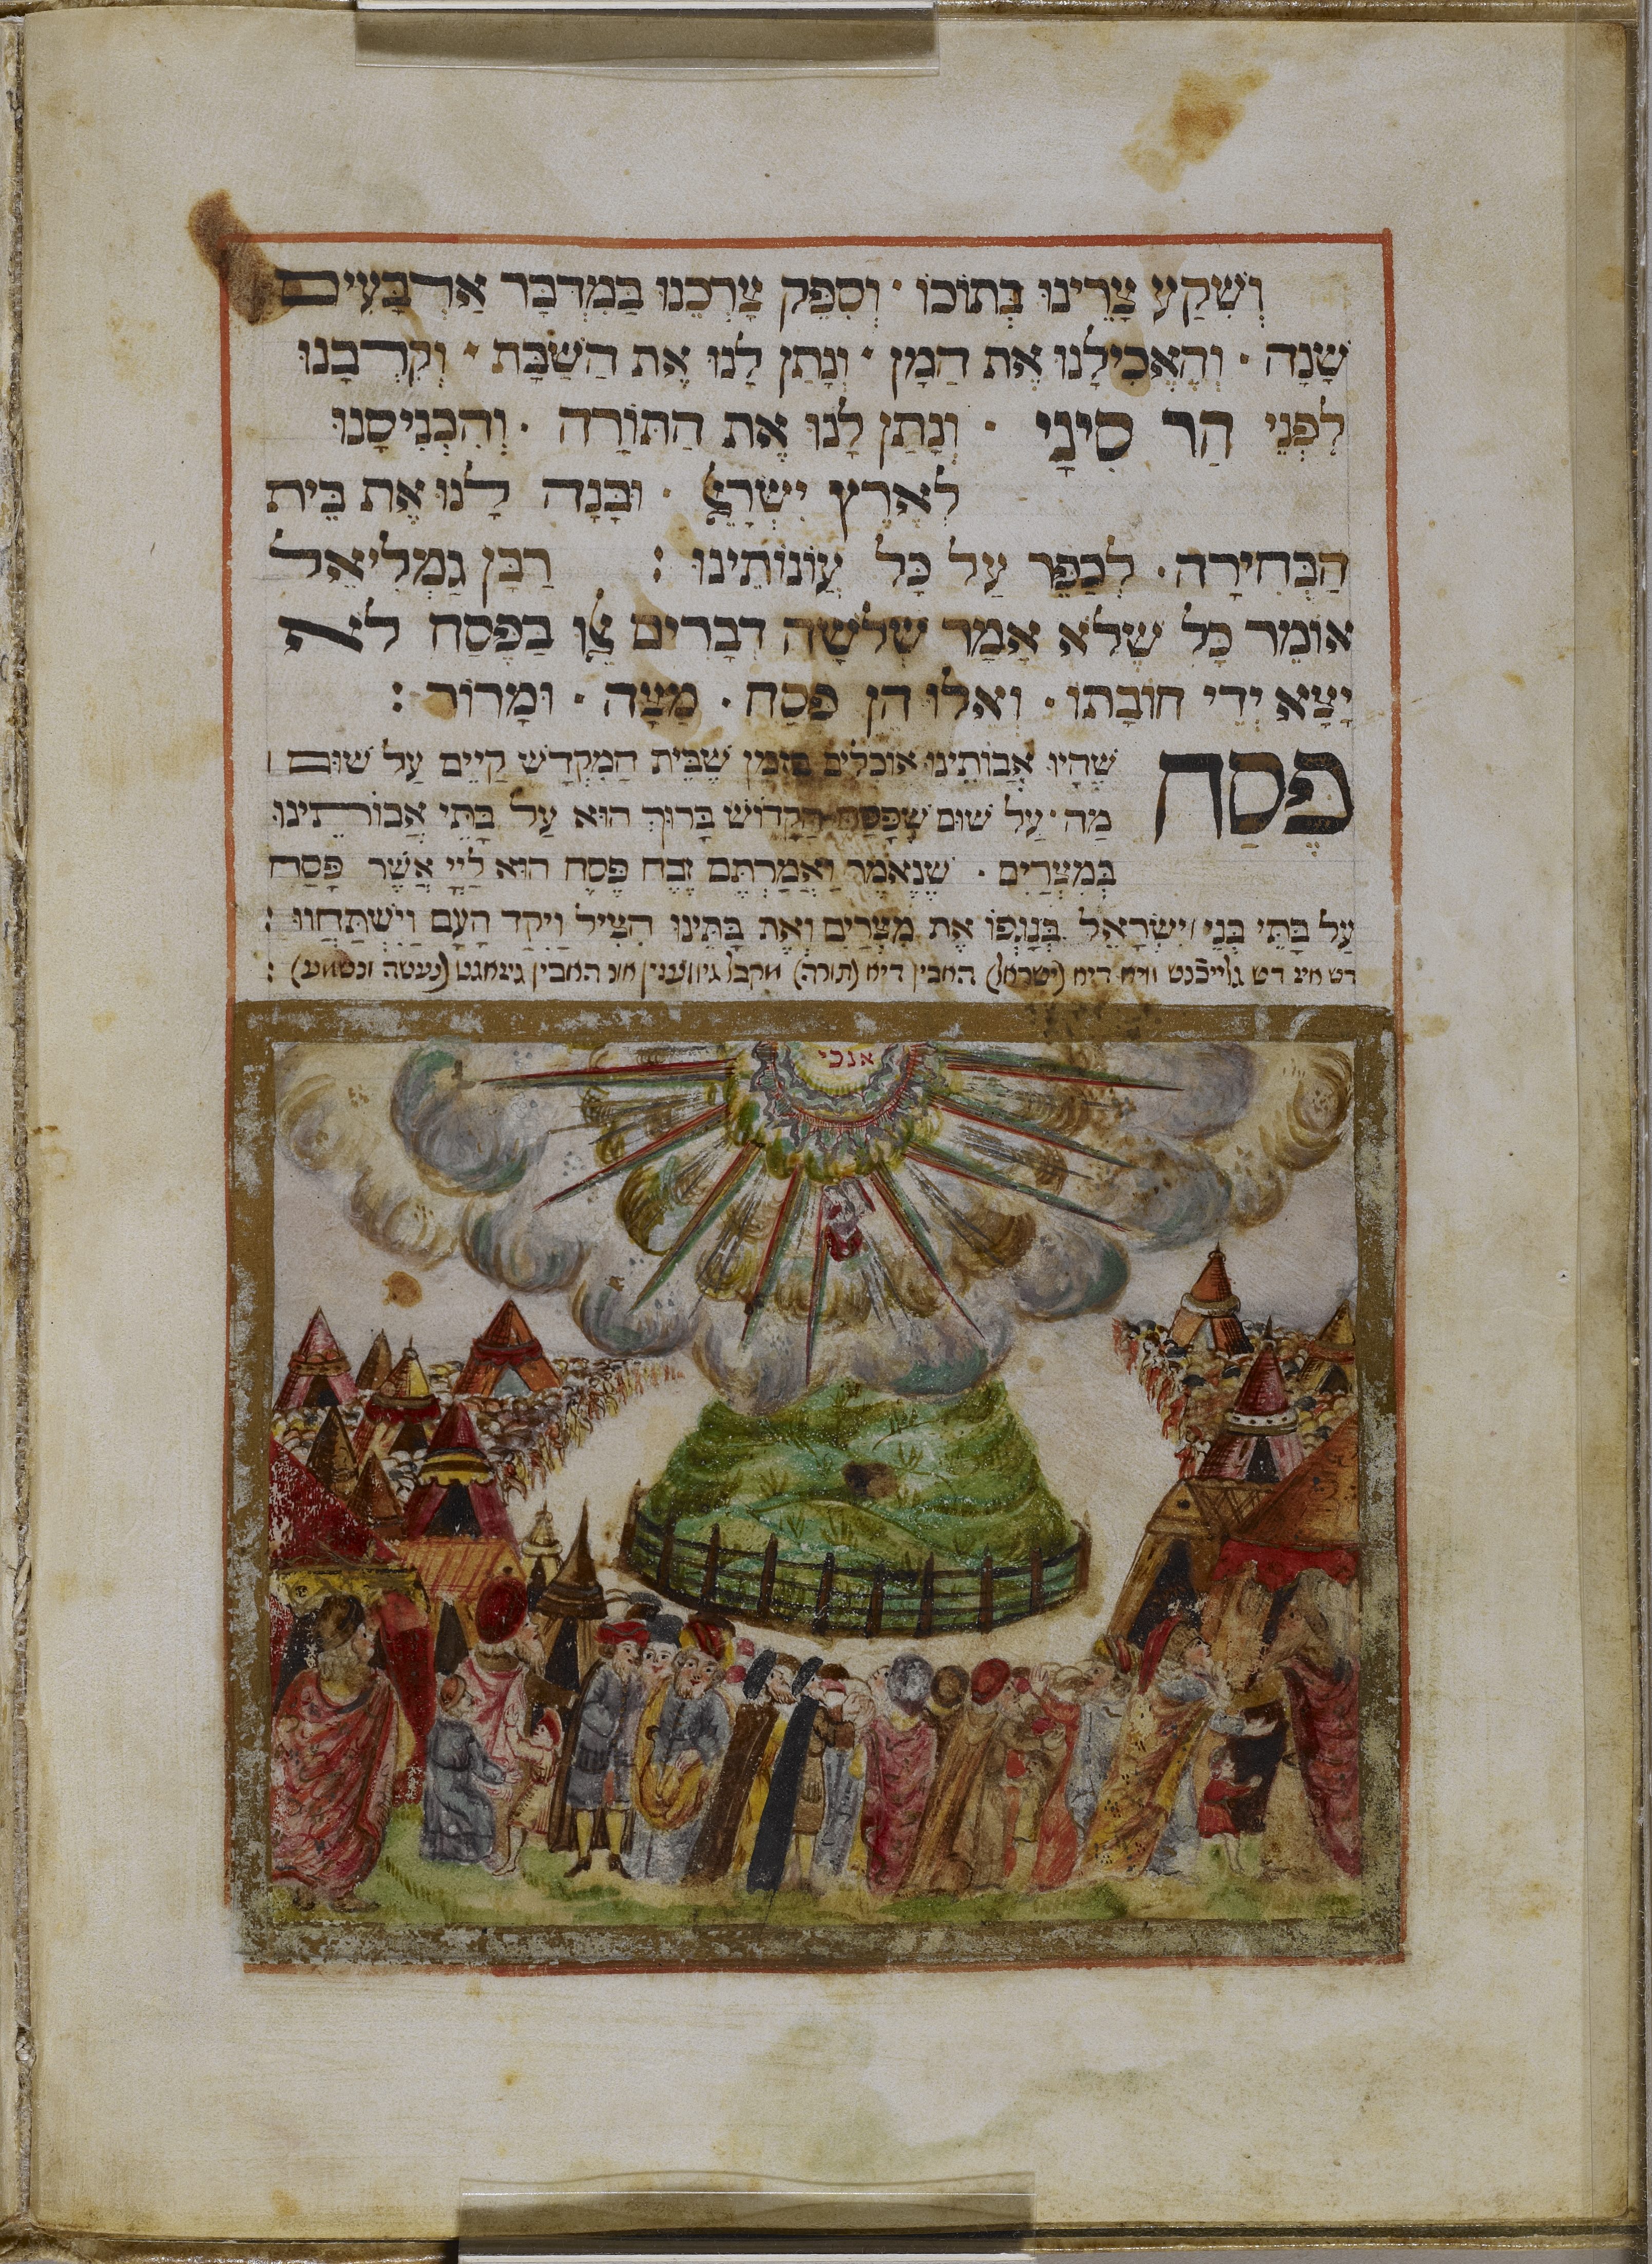 וְשִׁקַע צָרֵינוּ בְּתוֹכוֹ · וְסִפֵּק צָרְכֵנוּ בַּמִדְבָּר אַרְבָּעִים
שָׁנָה · וְהֶאֱכִילָנוּ אֶת הַמָן · וְנָתַן לָנוּ אֶת הַשַׁבָּת · וְקֵרְבָנוּ
לִפְנֵי הַר סִינָי · וְנָתַן לָנוּ אֶת הַתּוֹרָה · וְהִכְנִיסָנוּ
לְאֶרֶץ יִשְׂרָאֵל · וּבָנָה לָנוּ אֶת בֵּית
הַבְּחִירָה · לְכַפֵּר עַל כָּל עֲוֹנוֹתֵינוּ : רַבָּן גַּמְלִיאֵל
אוֹמֵר כָּל שֶׁלֹא אָמַר שְׁלֹשָׁה דְבָרִים אֵלּוּ בַּפֶּסַח לֹא
יָצָא יְדֵי חוֹבָתוֹ · וְאֵלוּ הֵן פֶּסַח · מַצָּה · וּמָרוֹר :
פֶּסַח שֶׁהָיוּ אֲבוֹתֵינוּ אוֹכְלִים בִּזְמַן שֶׁבֵּית הַמִקְדָשׁ קַיֵים עַל שׁוּם
מַה · עַל שׁוּם שֶׁפָּסַח הַקָדוֹשׁ בָּרוּךְ הוּא עַל בָּתֵּי אֲבוֹתֵינוּ
בְּמִצְרַיִם · שֶׁנֶאֱמַר וַאֲמַרְתֶּם זֶבַח פֶּסַח הוּא לַיְיָ אֲשֶׁר פָּסַח
עַל בָּתֵּי בְּנֵי יִשְׂרָאֵל בְּנָגְפּוֹ אֶת מִצְרַיִם וְאֶת בָּתֵּינוּ הִצִּיל וַיִקֹד הָעָם וַיִשְׁתַּחֲווּ :
דש איז דש גלייכֿנט וויא דיא (ישראל) האבין דיא (תורה) מקבל גיוועזין אונ האבין גיזאגט (נעשה ונשמע) :
אנכי